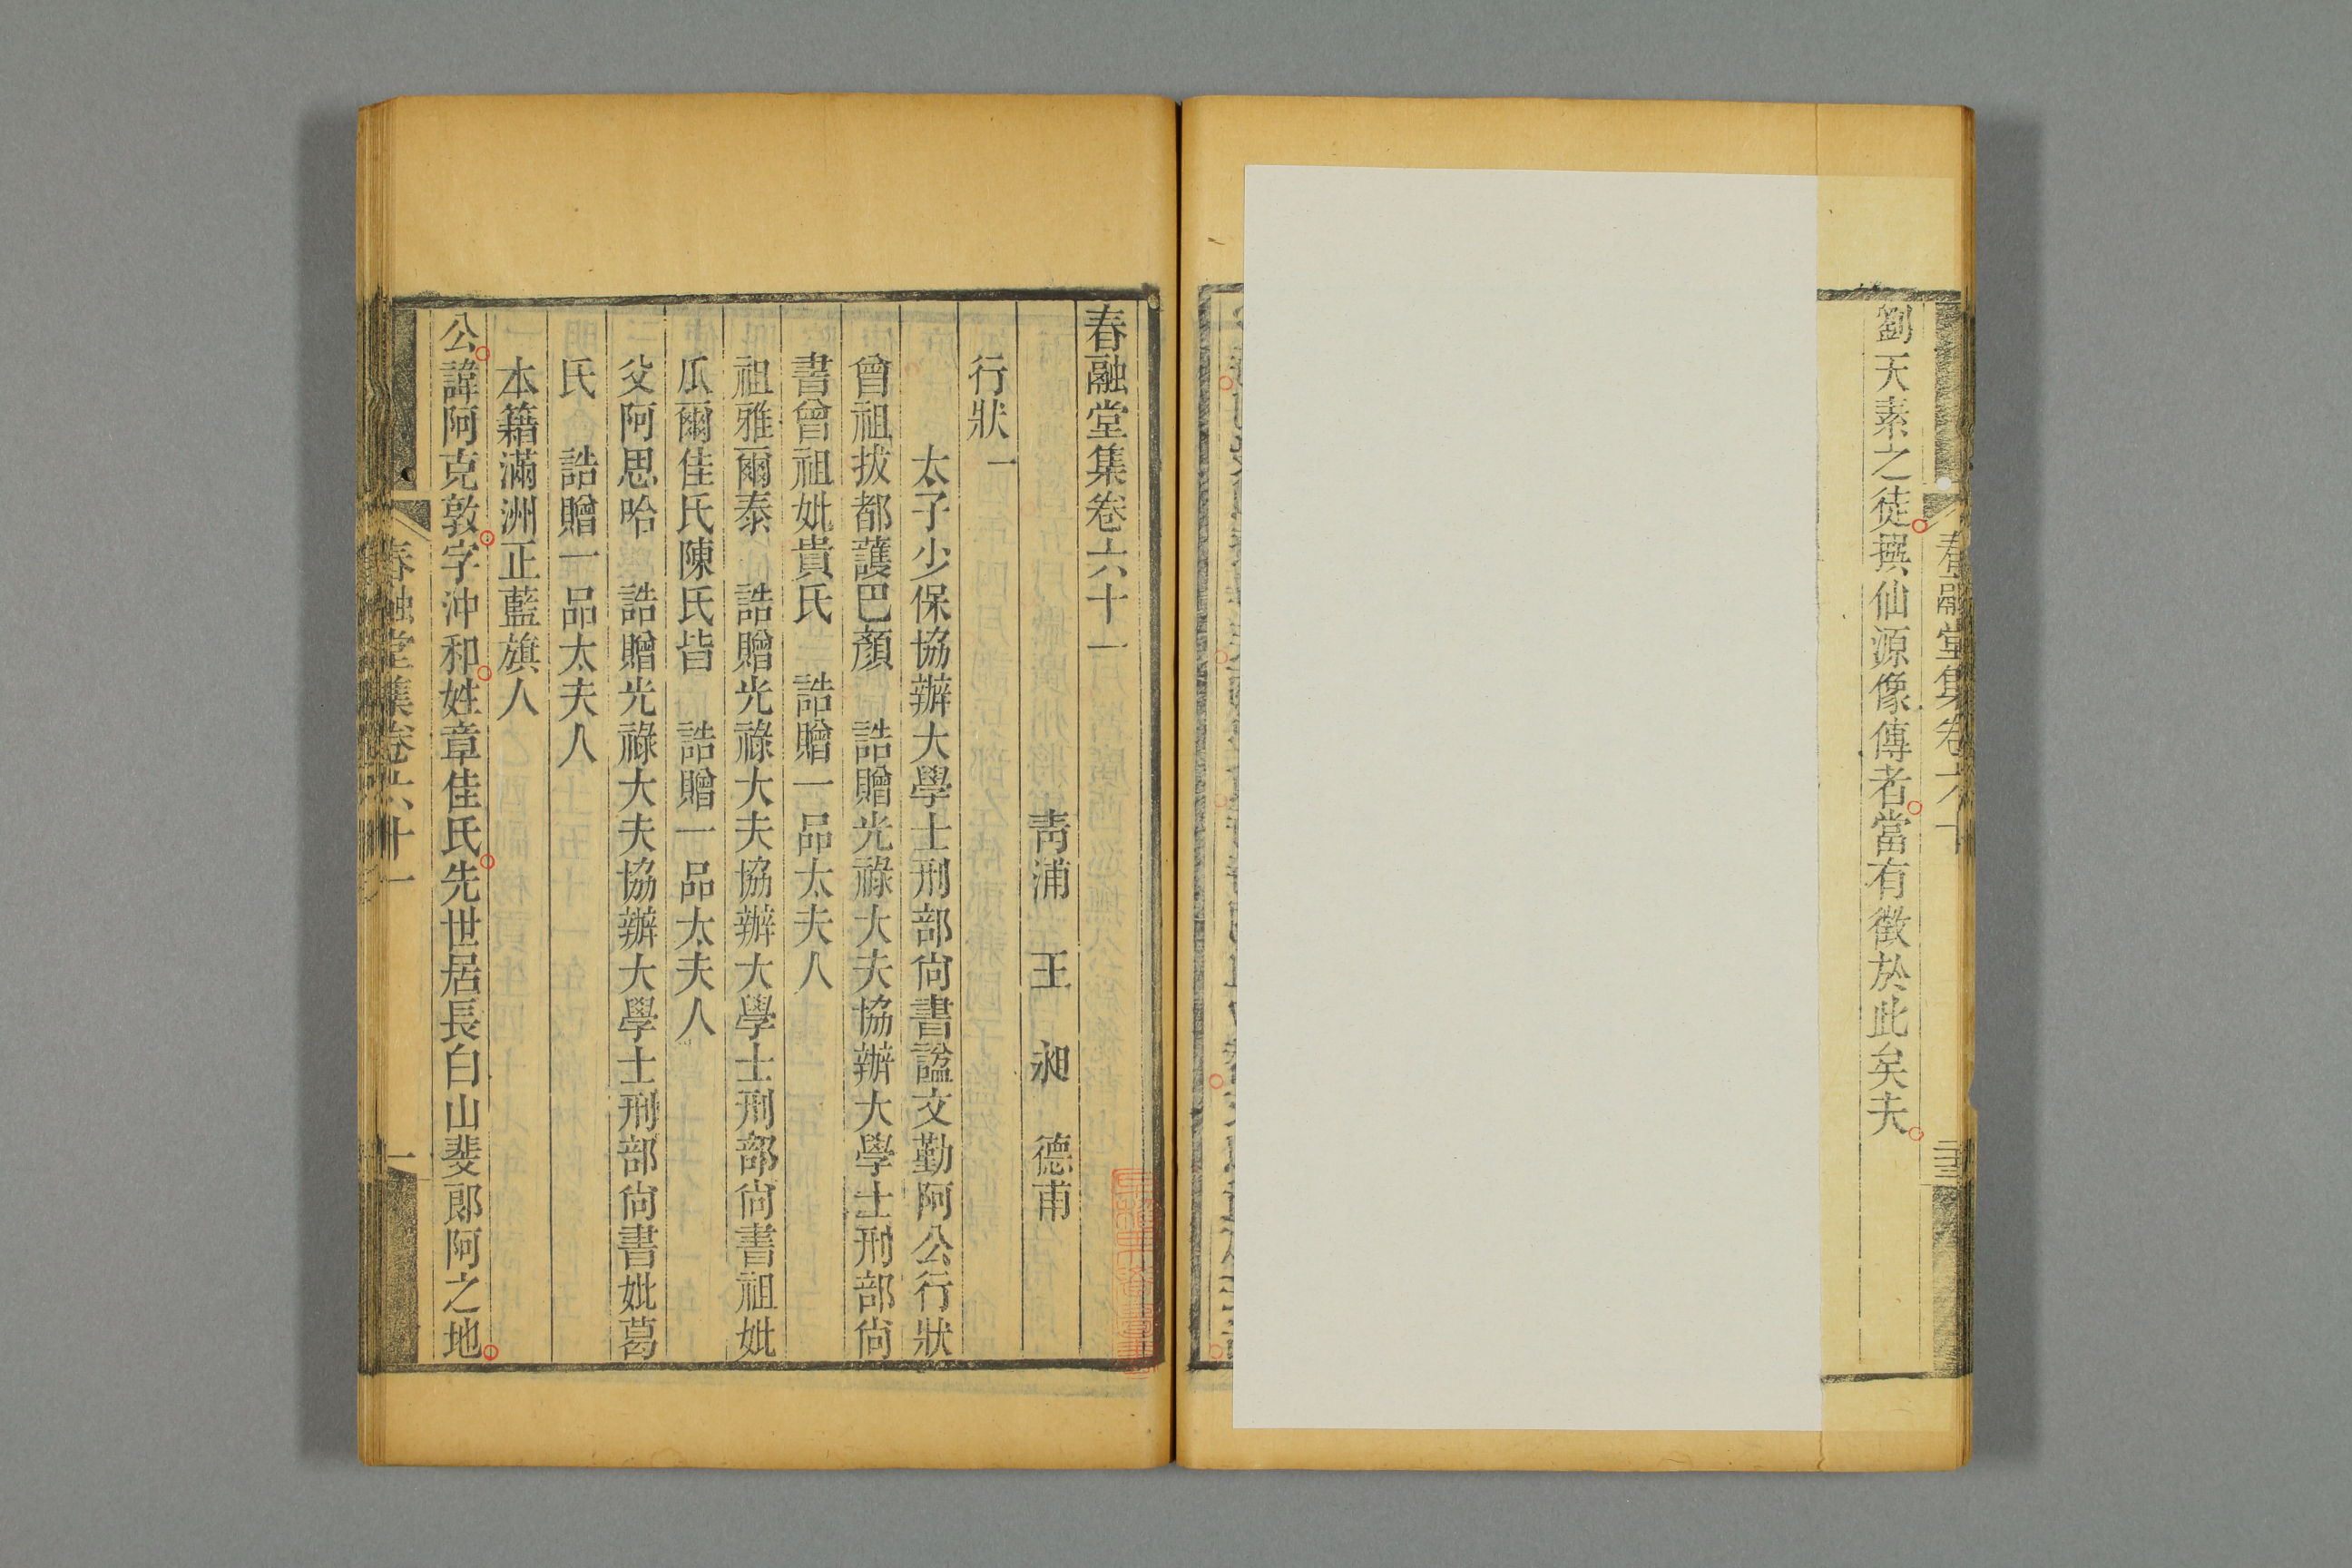 春融堂集卷六十
劉天素之徒撰仙源像傳者當有徵於此矣夫
春融堂集卷六十一
青浦 王 昶 德甫
行狀一
太子少保協辦大學士刑部尚書諡文勤阿公行狀
曾祖拔都護巴顏 誥贈光祿大夫協辦大學士刑部尚
書曾祖妣貴氏 誥贈一品太夫人
祖雅爾泰 誥贈光祿大夫協辦大學士刑部尚書祖妣
瓜爾佳氏陳氏皆 誥贈一品太夫人
父阿思哈 誥贈光祿大夫協辦大學士刑部尚書妣葛
氏 誥贈一品太夫人
本籍滿洲正藍旗人
公諱阿克敦字沖和姓章佳氏先世居長白山斐郎阿之地
春融堂集卷六十一
一